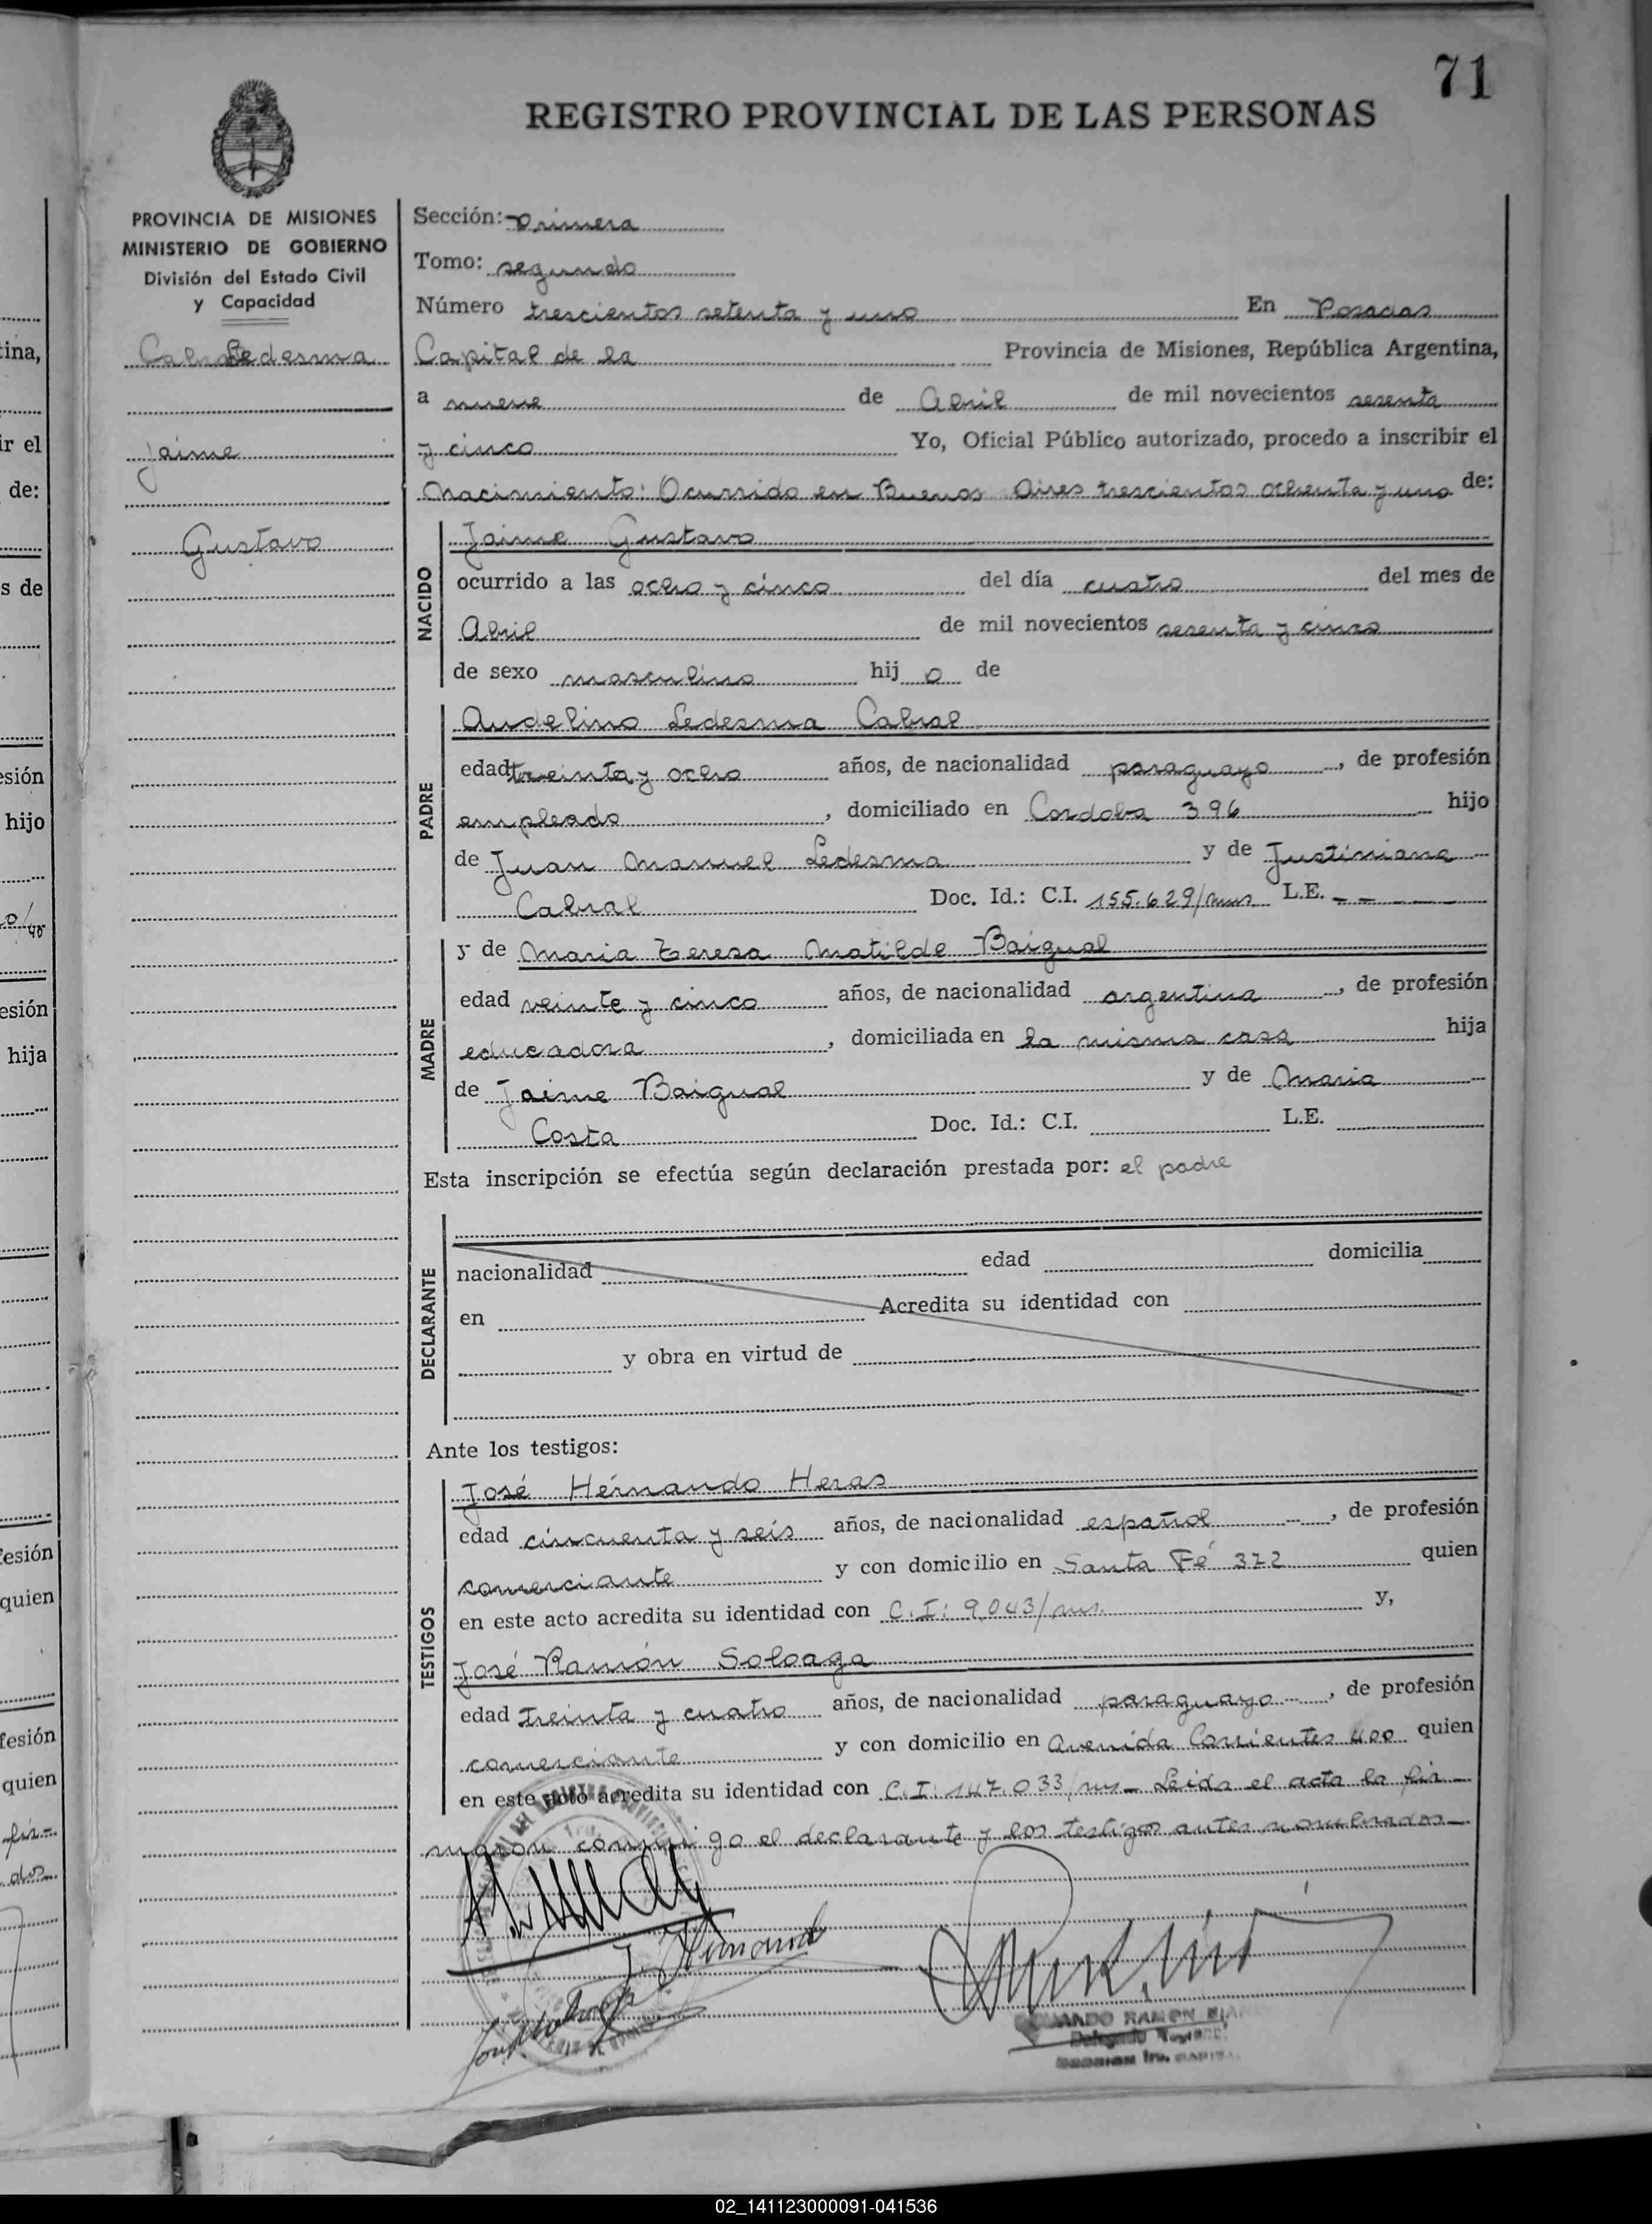 71
REGISTRO PROVINCIAL DE LAS PERSONAS
PROVINCIA DE MISIONES
MINISTERIO DE GOBIERNO
División del Estado Civil
y Capacidad
Ledesma
Jaime
Gustavo
Sección: Primera
Tomo: segundo
Número trescientos setenta y uno En Posadas
Capital de la Provincia de Misiones, República Argentina,
a nueve de Abril de mil novecientos sesenta
y cinco Yo, Oficial Público autorizado, procedo a inscribir el
Nacimiento: Ocurrido en Buenos Aires trescientos ochenta y uno de:
NACIDO
Jaime Gustavo
ocurrido a las ocho y cinco del día cuatro del mes de
Abril de mil novecientos sesenta y cinco
de sexo masculino hij o de
PADRE
Audelino Ledesma Cabral
edad treinta y ocho años, de nacionalidad paraguayo, de profesión
empleado, domiciliado en Cordoba 396 hijo
de Juan Manuel Ledesma y de Justiniana
Cabral Doc. Id.: C.I. 155.629/mns L.E. - -
MADRE
y de Maria Teresa Matilde Baigual
edad veinte y cinco años, de nacionalidad argentina, de profesión
educadora, domiciliada en la misma casa hija
de Jaime Baigual y de Maria
Costa Doc. Id.: C.I. L.E.
Esta inscripción se efectúa según declaración prestada por: el padre
DECLARANTE
nacionalidad edad domicilia
en Acredita su identidad con
y obra en virtud de
Ante los testigos:
TESTIGOS
José Hernando Heras
edad cincuenta y seis años, de nacionalidad español, de profesión
comerciante y con domicilio en Santa Fé 372 quien
en este acto acredita su identidad con C.I: 9.043/mns. y,
José Ramón Soloaga
edad treinta y cuatro años, de nacionalidad paraguayo, de profesión
comerciante y con domicilio en Avenida Corrientes 400 quien
en este acto acredita su identidad con C.I: 147.033/mns- Leida el acta la fir-
maron conmigo el declarante y los testigos antes nombrados-
RAMON
02_141123000091-041536